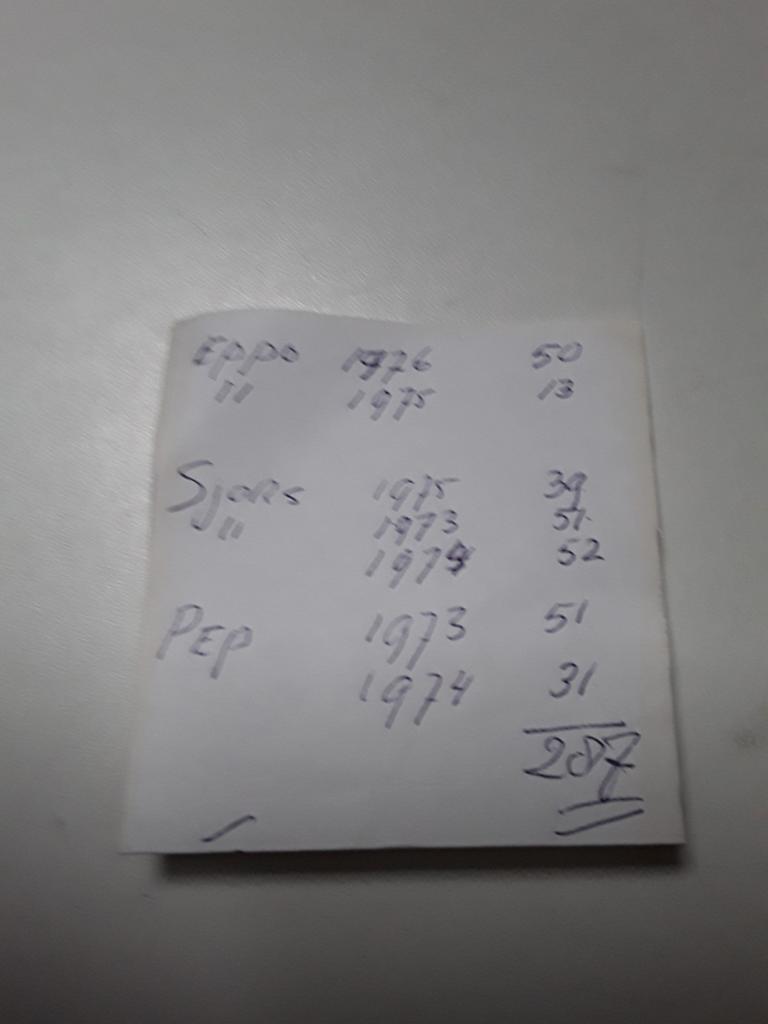 Eppo 1976 50
" 1975 13
Sjors 1975 39
" 1973 51
1974 52
PEP 1973 51
1974 31
287